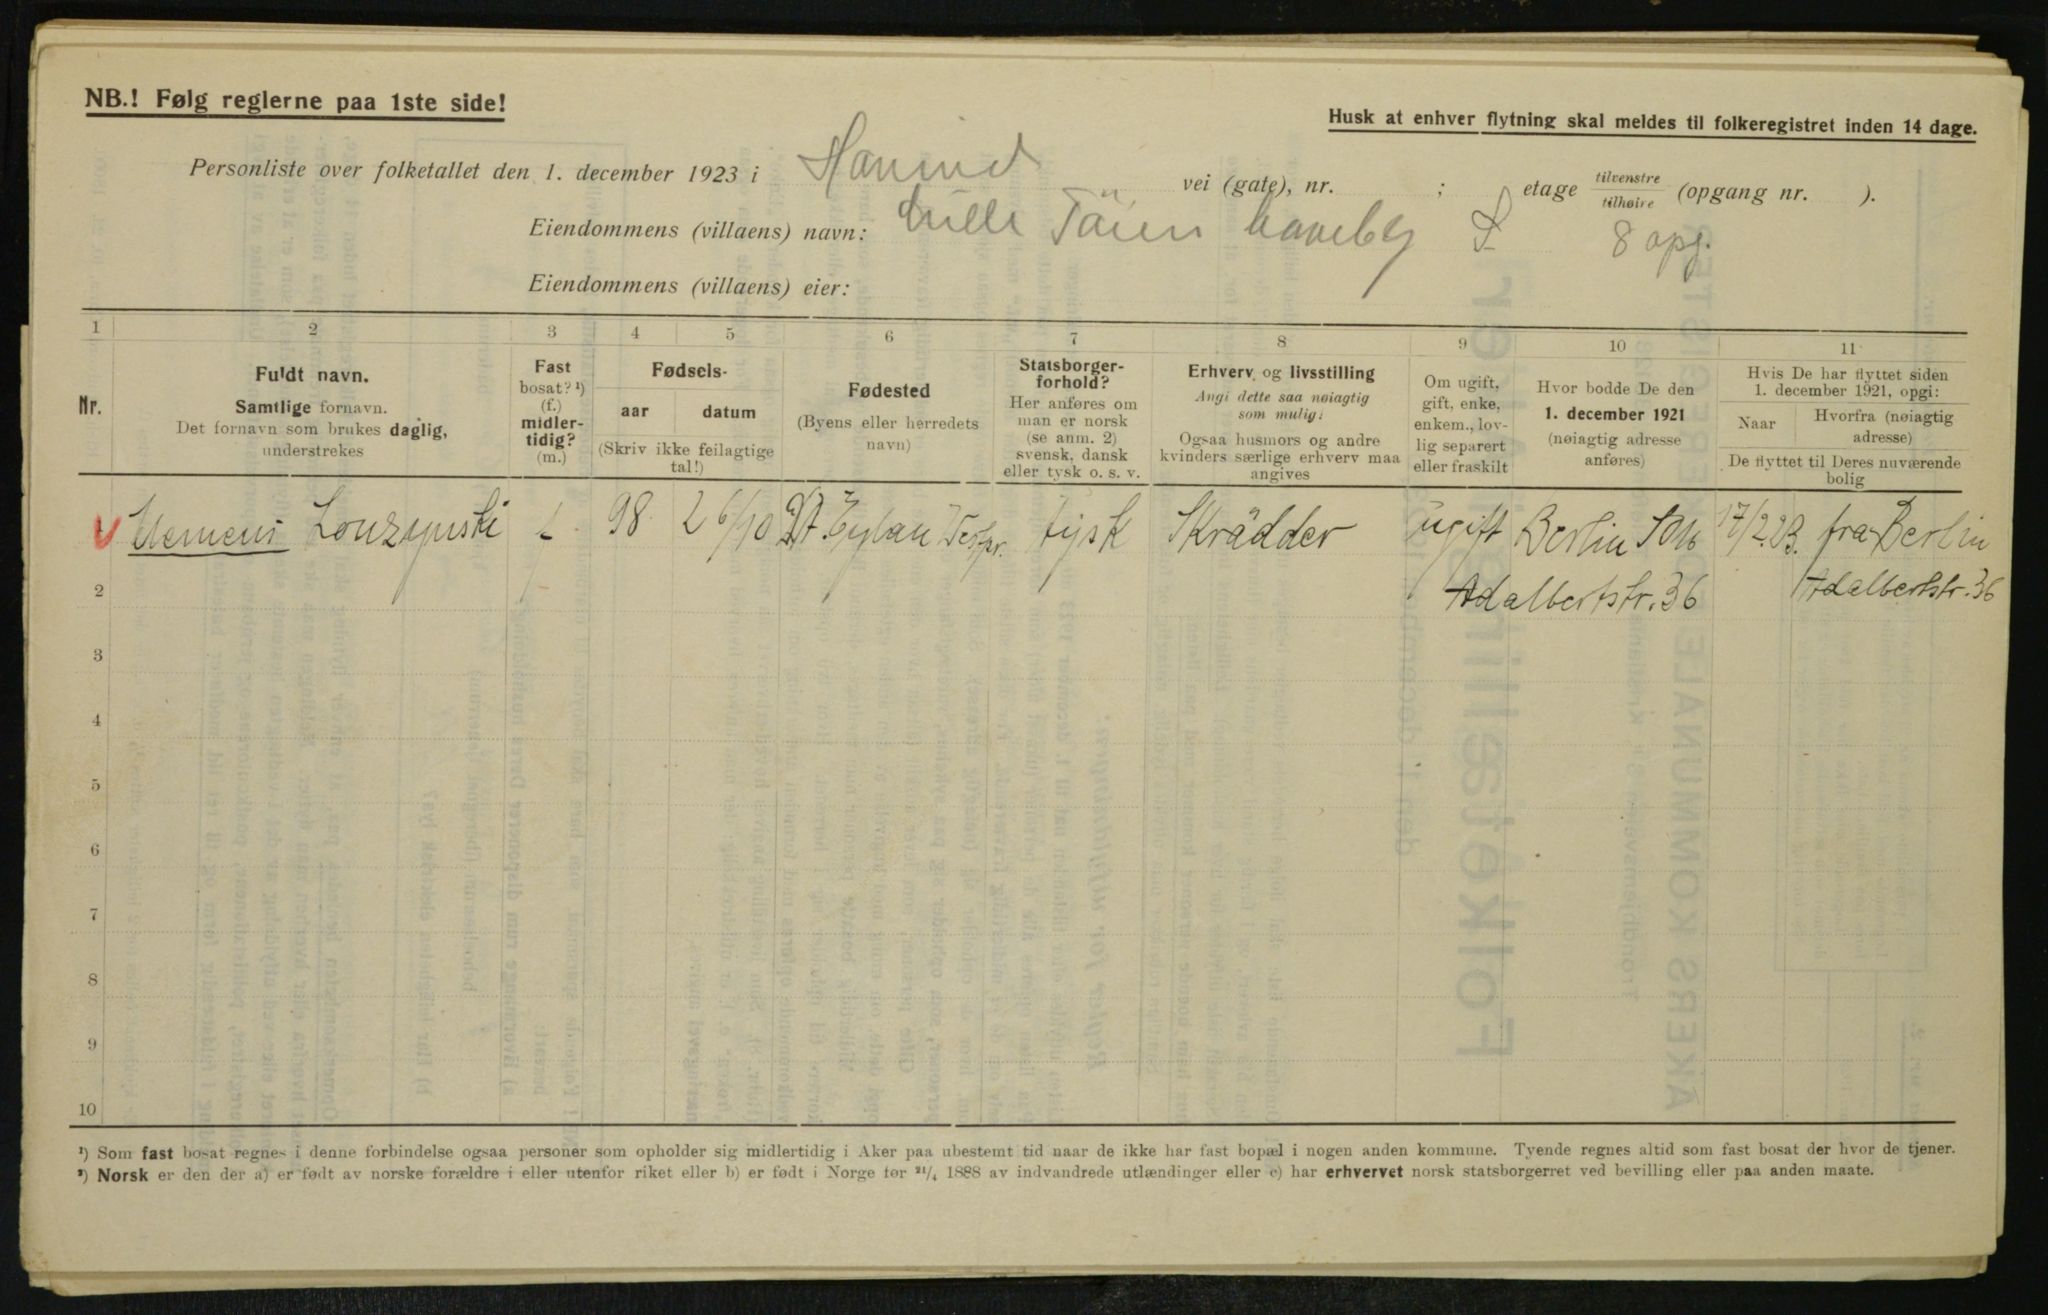 NB.! Følg reglerne paa 1ste side!
Husk at enhver flytning skal meldes til folkeregistret inden 14 dage.
Personliste over folketallet den 1. december 1923 i vei (gate), nr. ; etage tilvenstre tilhøire (opgang nr. ).
Eiendommens (villaens) navn: Lille Töien haveby 8 opg.
Eiendommens (villaens) eier:
1 2 3 4 5 6 7 8 9 10 11
Nr.
Fuldt navn.
Samtlige fornavn.
Det fornavn som brukes daglig,
understrekes
Fast
bosat? ¹)
(f.)
midler-
tidig?
(m.)
Fødsels-
aar datum
(Skriv ikke feilagtige
tal!)
Fødested
(Byens eller herredets
navn)
Statsborger-
forhold?
Her anføres om
man er norsk
(se anm. 2)
svensk, dansk
eller tysk o. s. v.
Erhverv og livsstilling
Angi dette saa nøiagtig
som mulig:
Ogsaa husmors og andre
kvinders særlige erhverv maa
angives
Om ugift,
gift, enke,
enkem., lov-
lig separert
eller fraskilt
Hvor bodde De den
1. december 1921
(nøiagtig adresse
anføres)
Hvis De har flyttet siden
1. december 1921, opgi:
Naar
Hvorfra (nøiagtig
adresse)
De flyttet til Deres nuværende
bolig
Klemens f 98 26/10 Dt. Eylau Westpr. tysk Skrädder ugift Berlin 17/2.23. fra Berlin
Adalbertstr. 36 Adalbertstr. 36
2
3
4
5
6
7
8
9
10
¹) Som fast bosat regnes i denne forbindelse ogsaa personer som opholder sig midlertidig i Aker paa ubestemt tid naar de ikke har fast bopæl i nogen anden kommune. Tyende regnes altid som fast bosat der hvor de tjener.
²) Norsk er den der a) er født av norske forældre i eller utenfor riket eller b) er født i Norge før ²¹/₄ 1888 av indvandrede utlændinger eller c) har erhvervet norsk statsborgerret ved bevilling eller paa anden maate.